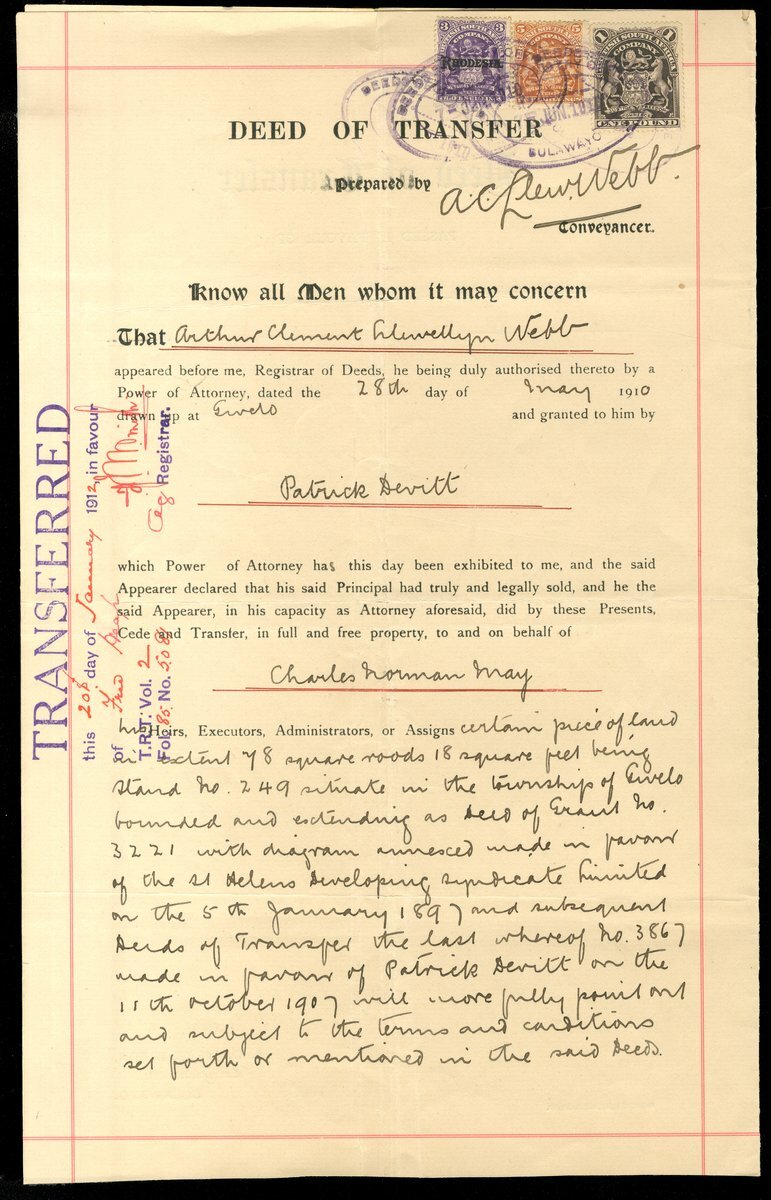 3 3
BRITISH SOUTH AFRICA
COMPANY
RHODESIA
5 5
COMPANY
1
BRITISH SOUTH AFRICA
COMPANY
ONE POUND
DEEDS
JUN. 1910
BULAWAYO
DEED OF TRANSFER
Prepared by A.C. Llew. Webb.
Conveyancer.
Know all Men whom it may concern
That Arthur Clement Llewellyn Webb
appeared before me, Registrar of Deeds, he being duly authorised thereto by a
Power of Attorney, dated the 28th day of May 1910
drawn up at Gwelo and granted to him by
Patrick Devitt
which Power of Attorney has this day been exhibited to me, and the said
Appearer declared that his said Principal had truly and legally sold, and he the
said Appearer, in his capacity as Attorney aforesaid, did by these Presents,
Cede and Transfer, in full and free property, to and on behalf of
Charles Norman May
his Heirs, Executors, Administrators, or Assigns certain piece of land
in extent 78 square roods 18 square feet being
Stand No. 249 situate in the township of Gwelo
bounded and extending as Deed of Grant No.
3221 with diagram annexed made in favour
of the St Helens Developing Syndicate Limited
on the 5th January 1897 and subsequent
Deeds of Transfer the last whereof No. 3867
made in favour of Patrick Devitt on the
11th October 1907 will more fully point out
and subject to the terms and conditions
set forth or mentioned in the said Deeds.
TRANSFERRED
this 20th day of January 1912 in favour
of Fred
T.R.T. Vol. 2
Fol. 85. No. 508
Ag. Registrar.